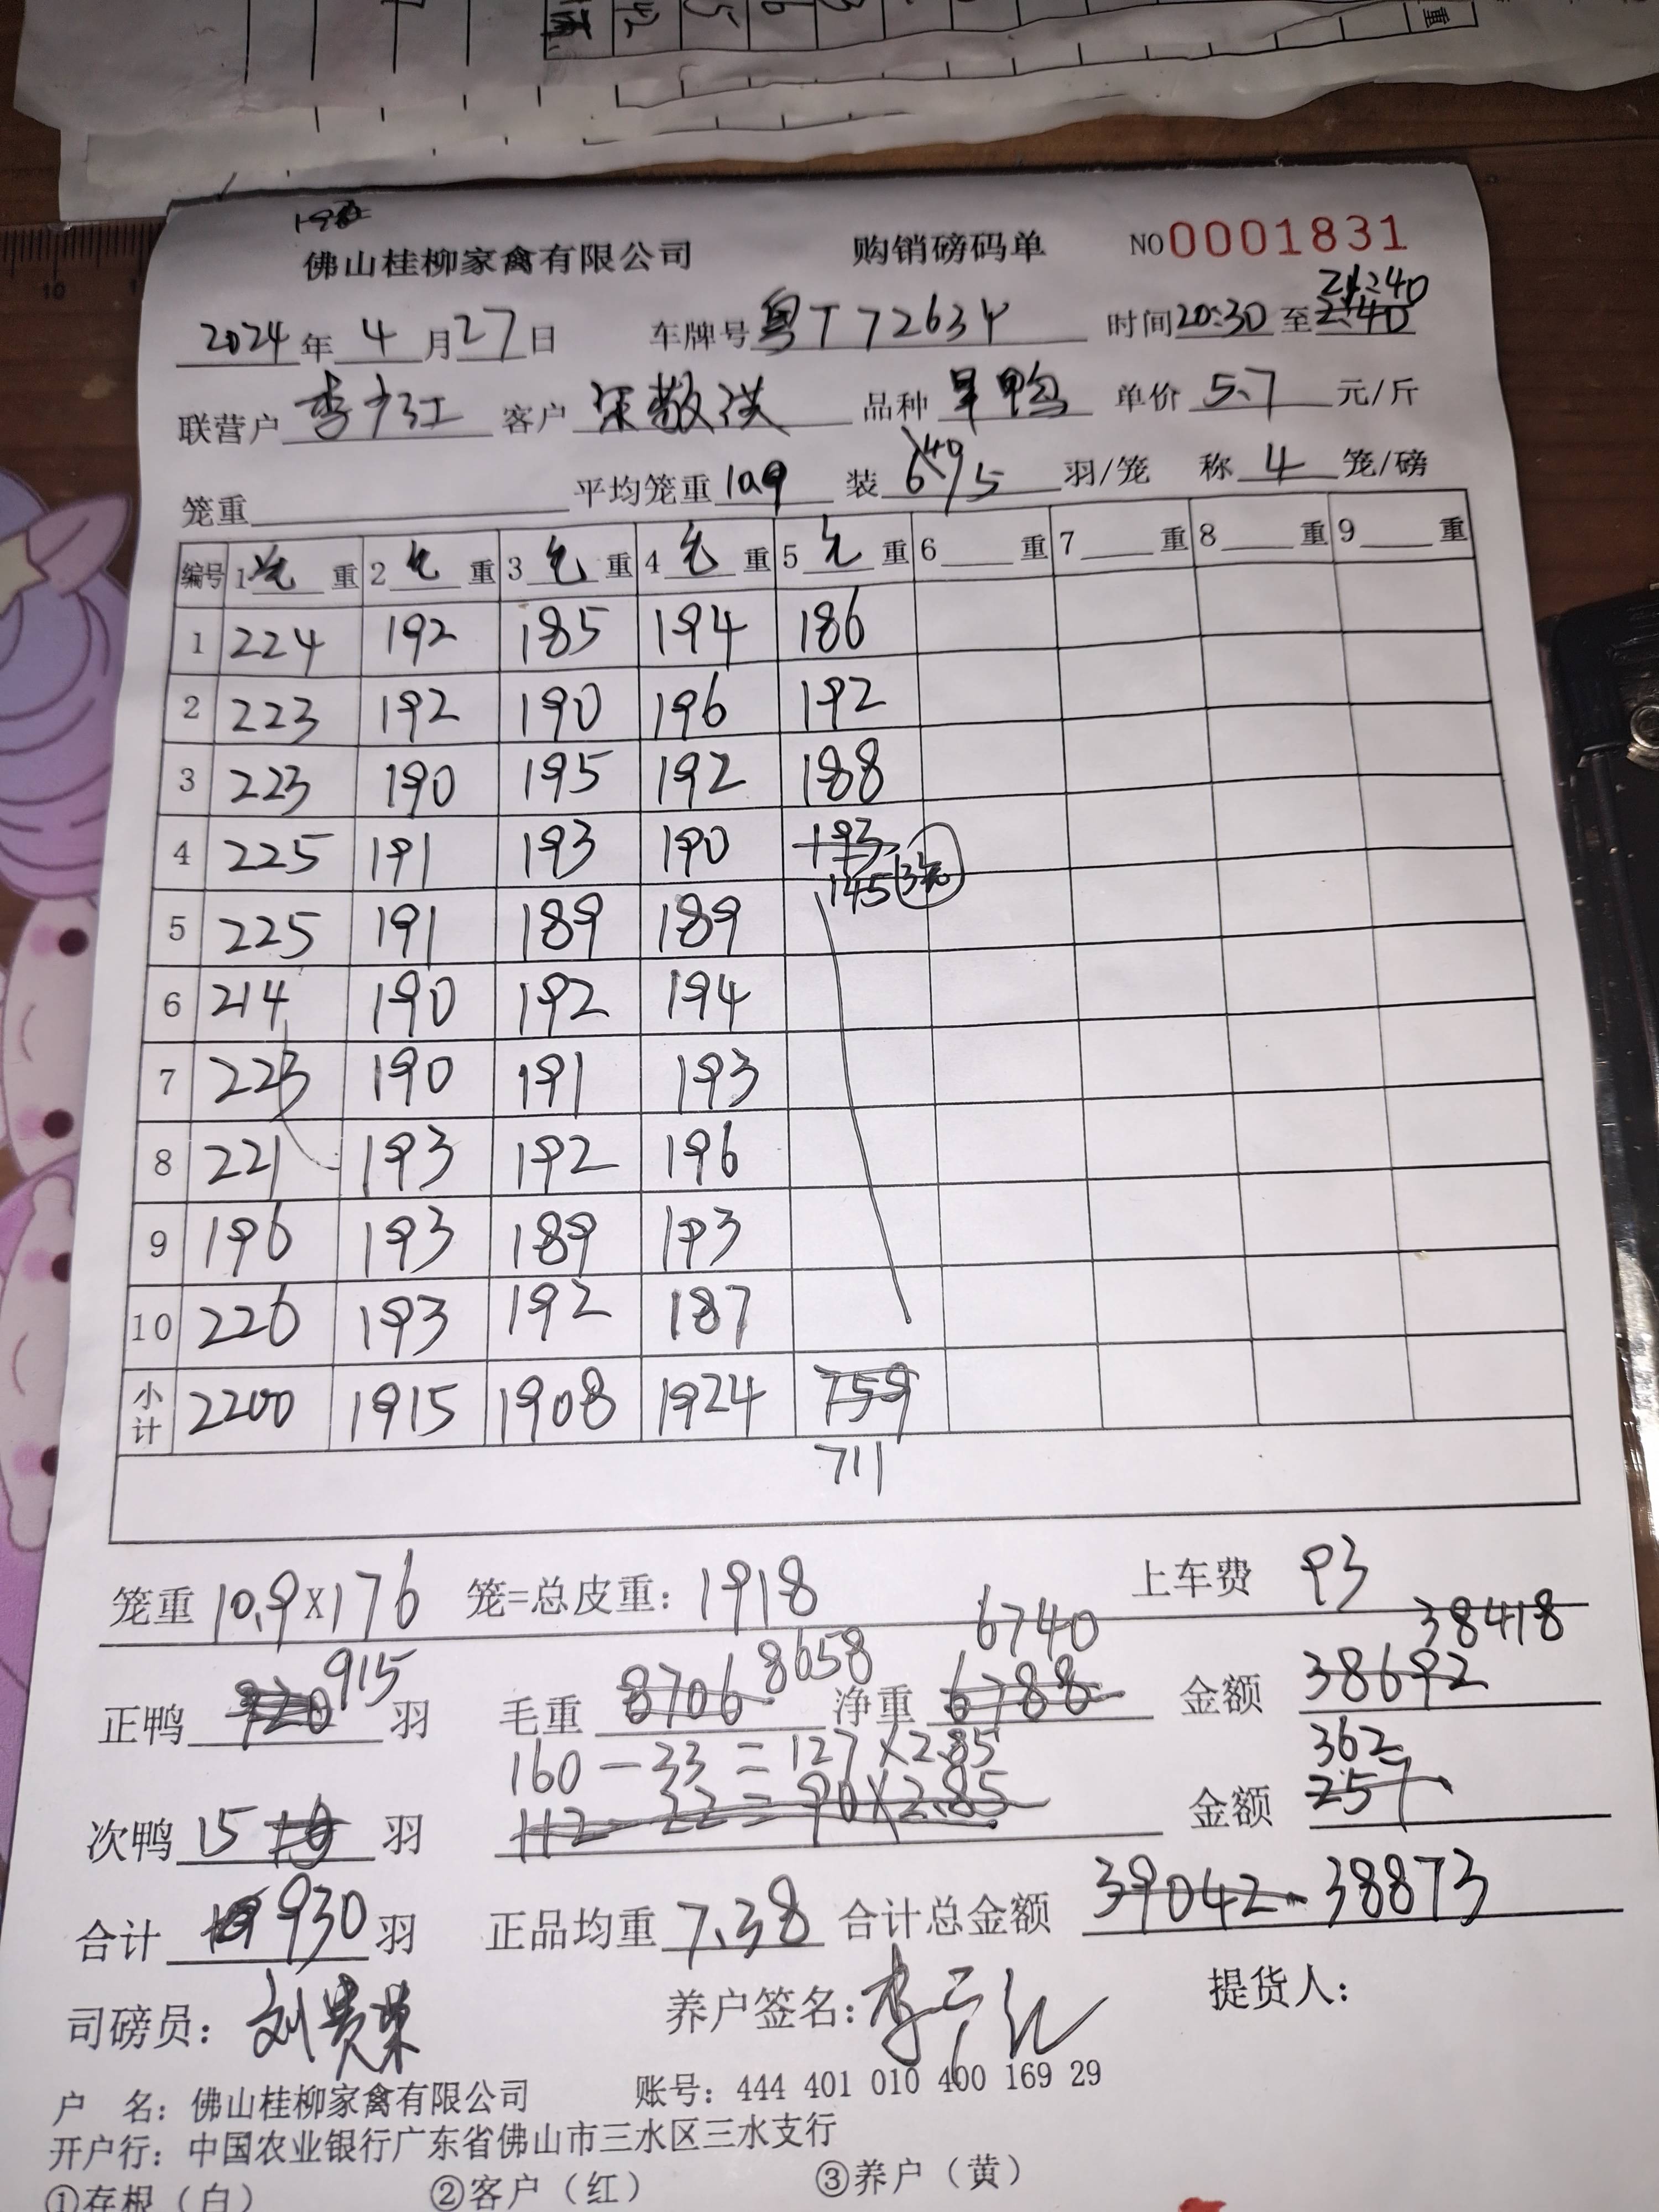 佛山桂柳家禽有限公司 购销磅码单 NO 0001831
2024 年 4 月 27 日 车牌号 粤T72634 时间 20:30 至 21:40
联营户 客户 品种 旱鸭 单价 5.7 元/斤
笼重 平均笼重 10.9 装 5 羽/笼 称 4 笼/磅
编号 1 毛 重 2 毛 重 3 毛 重 4 毛 重 5 毛 重 6 重 7 重 8 重 9 重
1 224 192 185 194 186
2 223 192 190 196 192
3 223 190 195 192 188
4 225 191 193 190 193
145
5 225 191 189 189
6 214 190 192 194
7 223 190 191 193
8 221 193 192 196
9 196 193 189 193
10 226 193 192 187
小计 2200 1915 1908 1924 759
711
笼重 10.9×176 笼=总皮重: 1918 上车费 93
6740 38418
正鸭 920 915 羽 毛重 8706 8658 净重 6788 金额 38692
160-33=127×2.85 362
次鸭 15 10 羽 112-22=90×2.85 金额 257
合计 930 羽 正品均重 7.38 合计总金额 39042 38873
司磅员: 刘贵荣 养户签名: 提货人:
户 名: 佛山桂柳家禽有限公司 账号: 444 401 010 400 169 29
开户行: 中国农业银行广东省佛山市三水区三水支行
①存根(白) ②客户(红) ③养户(黄)